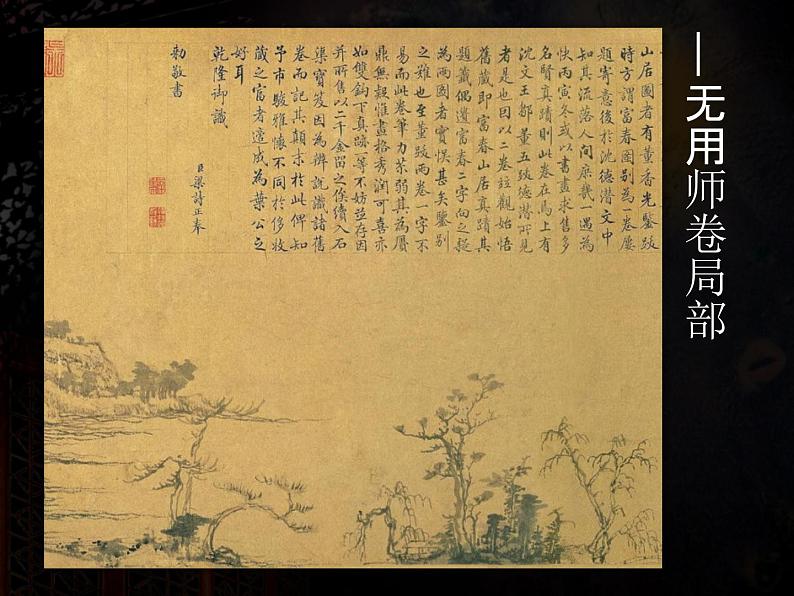 —无用师卷局部
山居圖者有董香光鑒跋
時方謂富春圖別為一卷屢
題寄意後於沈德潛文中
知其流落人間庶幾一遇為
快丙寅冬或以書畫求售多
名賢真蹟則此卷在焉上有
沈文王鄒董五跋德潛所見
者是也因以二卷並觀始悟
舊藏即富春山居真蹟其
題籤偶遺富春二字向之疑
為兩圖實悞甚矣鑒別
之難也至董跋兩卷一字不
易而此卷筆力苶弱其為贋
鼎無疑惟畫格秀潤可喜亦
如雙鈎下真蹟一等不妨並存因
并所售以二千金留之俟續入石
渠寶笈因為辨說識諸舊
卷而記其顛末於此俾知
予市駿雅懷不同於侈收
藏之富者適成為葉公之
好耳
乾隆御識
臣梁詩正奉
勅敬書